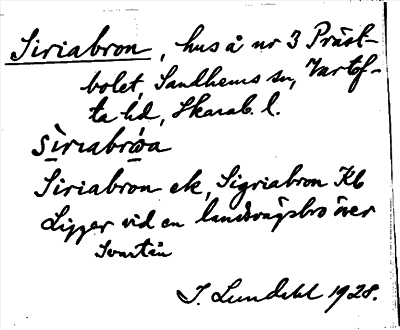 Siriabron, hus å nr 3 Präst-
bolet, Sandhems sn, Vartof-
ta hd, Skarab. l.
sìriabrǿa
Siriabron ek, Sigriabron Kb
Ligger vid en landsvägsbro över
Svartån
I. Lundahl 1928.